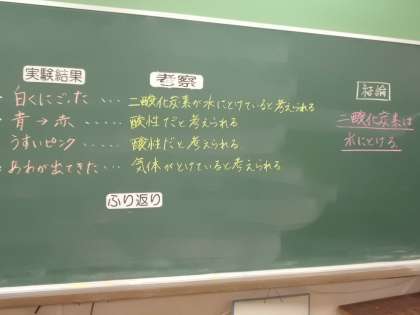 実験結果
考察
結論
白くにごった ‥‥ 二酸化炭素が水にとけていると考えられる
青→赤 ‥‥ 酸性だと考えられる
うすいピンク ‥‥ 酸性だと考えられる
あわが出てきた ‥‥ 気体がとけていると考えられる
二酸化炭素は
水にとける
ふり返り